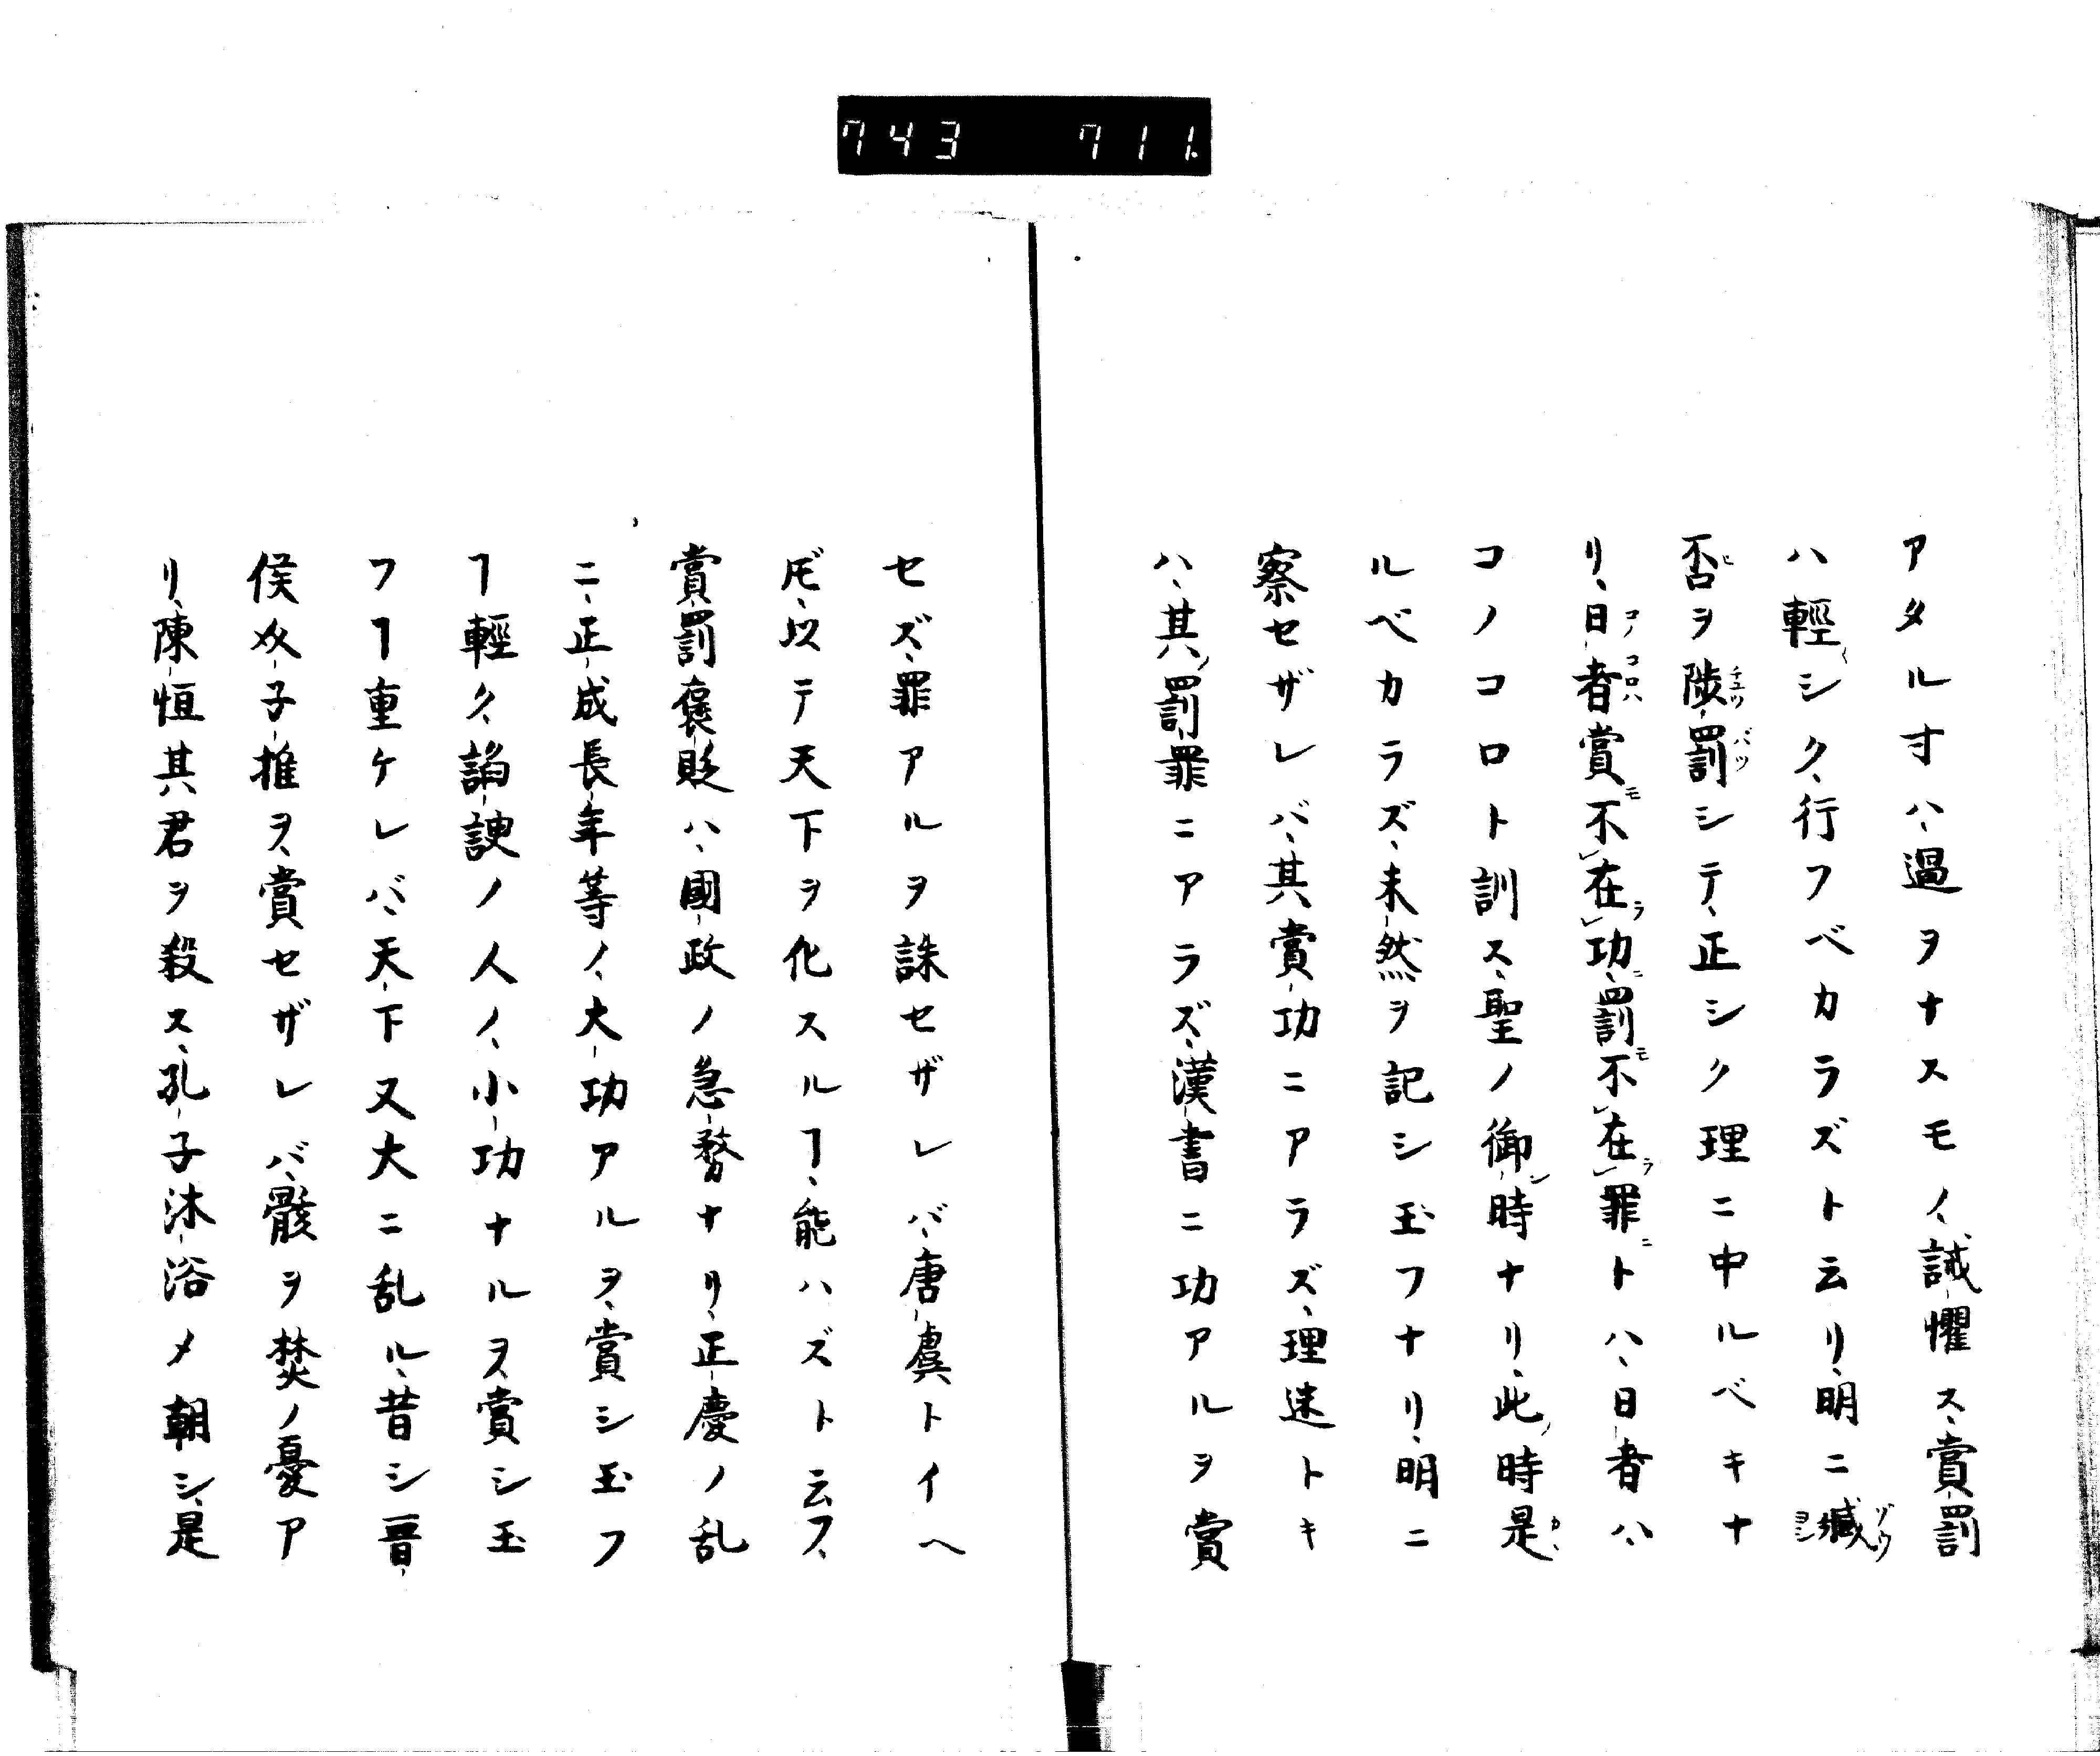 743 711.
アタル寸ハ、過ヲナスモノ、誡懼ス、賞罰
ハ輕〳〵シク、行フベカラズト云リ、明ニ臧
否ヲ陟罰シテ、正シク理ニ中ルベキナ
リ、日者賞不在功、罰不在罪トハ、日者ハ、
コノコロト訓ス、聖ノ御時ナリ、此時是
ルベカラズ、未然ヲ記シ玉フナリ、明ニ
察セザレバ、其賞功ニアラズ、理迷トキ
ハ、其罰罪ニアラズ、漢書ニ功アルヲ賞
セズ、罪アルヲ誅セザレバ、唐虞トイヘ
𪜈、以テ天下ヲ化スルヿ、能ハズト云フ、
賞罰褒貶ハ、國政ノ急務ナリ、正慶ノ乱
ニ、正成長年等ノ、大功アルヲ、賞シ玉フ
ヿ輕ク、諂諛ノ人ノ、小功ナルヲ、賞シ玉
フヿ重ケレバ、天下又大ニ乱ル、昔シ晋
侯介子推ヲ、賞セザレバ、骸ヲ焚ノ憂ア
リ、陳恒其君ヲ殺ス、孔子沐浴メ朝シ、是